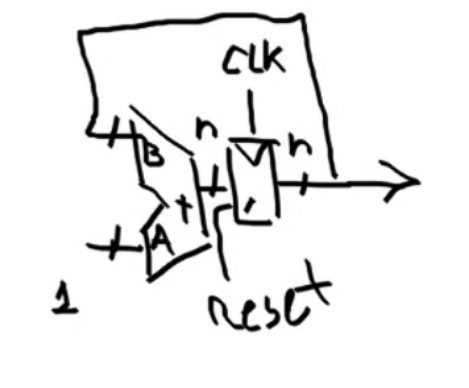 CLK
n
n
B
+
A
1
Reset